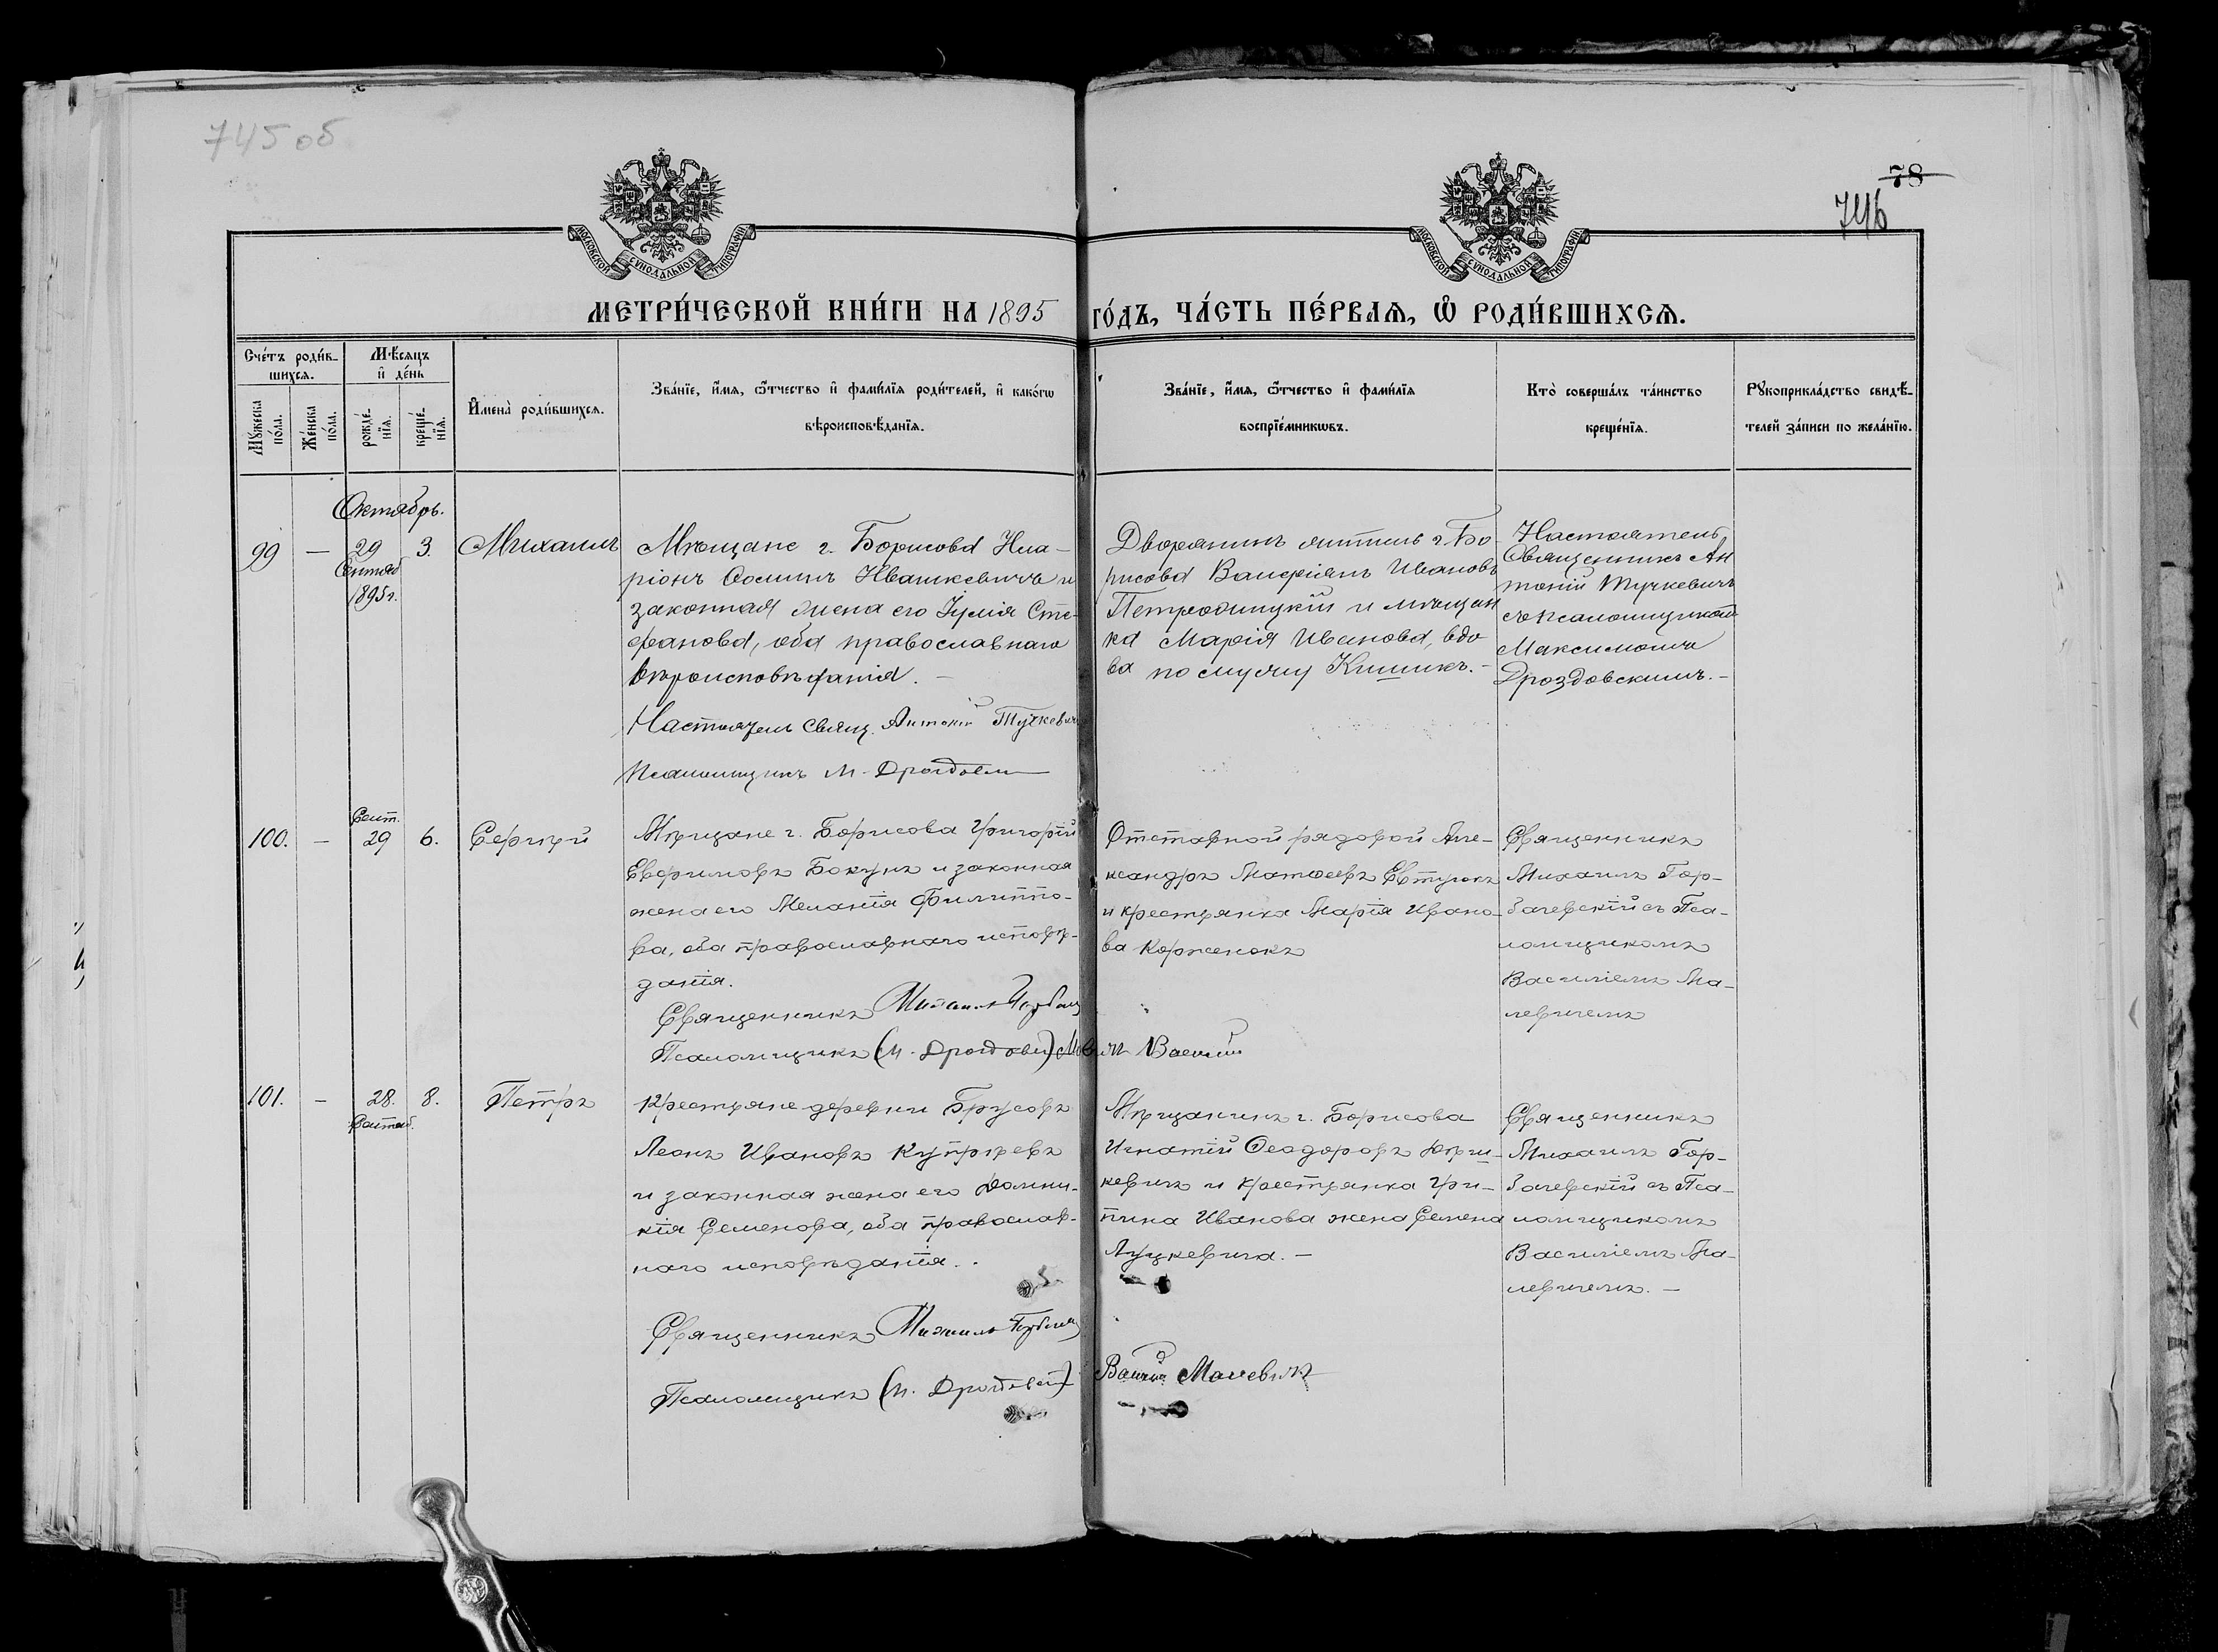 745 об
78
746
МОСКОВСКОЙ СѴНОДАЛЬНОЙ ТИПОГРАФІИ
МОСКОВСКОЙ СѴНОДАЛЬНОЙ ТИПОГРАФІИ
МЕТРИ́ЧЕСКОЙ КНИ́ГИ НА 1895 ГО́ДЪ, ЧА́СТЬ ПЕ́РВАѦ, Ѡ РОДИ́ВШИХСѦ.
Счє́тъ роди́в-
шихсѧ.
Мѣ́сѧцъ
и҆ де́нь
Мꙋ́жеска по́ла.
Же́нска по́ла.
рожде́-
нїѧ.
креще́-
нїѧ.
И҆мена̀ роди́вшихсѧ.
Зва́нїе, и҆́мѧ, ѻ҆́тчество и҆ фами́лїѧ роди́телей, и҆ како́гѡ
вѣроисповѣ́данїѧ.
Зва́нїе, и҆́мѧ, ѻ҆́тчество и҆ фами́лїѧ
воспрїе́мникѡвъ.
Кто̀ соверша́лъ та́инство
креще́нїѧ.
Рꙋкоприкла́дство свидѣ́-
телей за́писи по жела́нїю.
Октябрь.
99 — 29 Сентяб 1895 г. 3. Михаилъ
Мѣщане г. Борисова Ила-
ріонъ Ѳоминъ Ивашкевичъ и
законная жена его Іулія Сте-
фанова, оба православнаго
вѣроисповѣданія. —
Настоятель Свящ. Антоній Тучкевичъ
Псаломщикъ М. Дроздовскій
Дворянинъ житель г. Бо-
рисова Валеріянъ Ивановъ
Петрожицкій и мѣщан
ка Марія Иванова, вдо
ва по мужу Кишикъ. —
Настоятель
Священникъ Ан
тоній Тучкевичъ
съ псаломщикомъ
Максимомъ
Дроздовскимъ. —
100. — Сент. 29 6. Сергѣй
Мѣщане г. Борисова Григорій
Евфимовъ Бокунъ и законная
жена его Меланія Филиппо-
ва, оба православнаго исповѣ-
данія.
Священникъ Михаилъ Горбац
Псаломщикъ (М. Дроздовскій) Василій
Отставной рядовой Але-
ксандръ Матѳеевъ Евтухъ
и крестьянка Марія Ивано-
ва Корженокъ
Священникъ
Михаилъ Гор-
бачевскій съ Пса-
ломщикомъ
Василіемъ Ма-
левичемъ
101. — 28. Сентяб. 8. Петръ
Крестьяне деревни Брусовъ
Леонъ Ивановъ Купрѣевъ
и законная жена его Домни-
кія Семенова, оба православ-
наго исповѣданія.
Священникъ Михаилъ Горбач
Псаломщикъ (М. Дроздовскій) Василій Малевичъ
Мѣщанинъ г. Борисова
Игнатій Ѳеодоровъ
кевичъ и крестьянка Гри-
пина Иванова жена Семена
Луцкевича. —
Священникъ
Михаилъ Гор-
бачевскій съ Пса-
ломщикомъ
Василіемъ Ма-
левичемъ. —